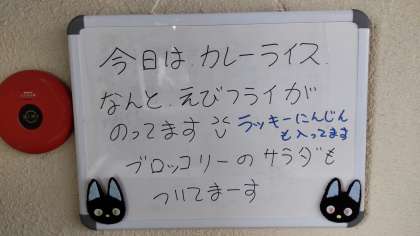 今日は、カレーライス、
なんと、えびフライが
のってます
ラッキーにんじん
も入ってます
ブロッコリーのサラダも
ついてまーす